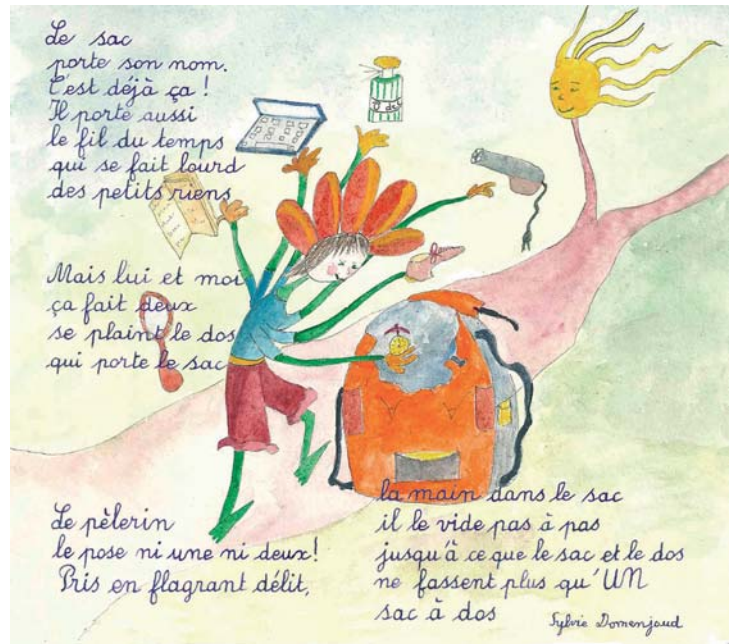 Le sac
porte son nom.
C'est déjà ça !
Il porte aussi
le fil du temps
qui se fait lourd
des petits riens
Mais lui et moi
ça fait deux
se plaint le dos
qui porte le sac
Le pèlerin
le pose ni une ni deux!
Pris en flagrant délit,
la main dans le sac
il le vide pas à pas
jusqu'à ce que le sac et le dos
ne fassent plus qu'UN
sac à dos
Sylvie Domenjoud